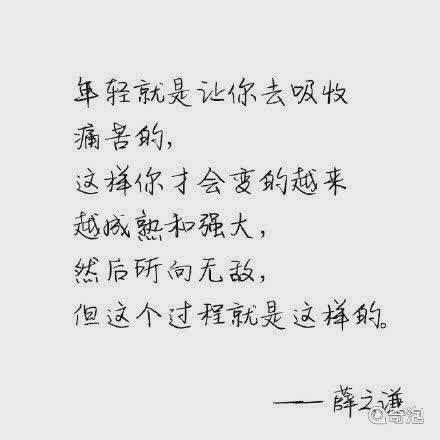 年轻就是让你去吸收
痛苦的,
这样你才会变的越来
越成熟和强大,
然后所向无敌,
但这个过程就是这样的。
——薛之谦
奇泡